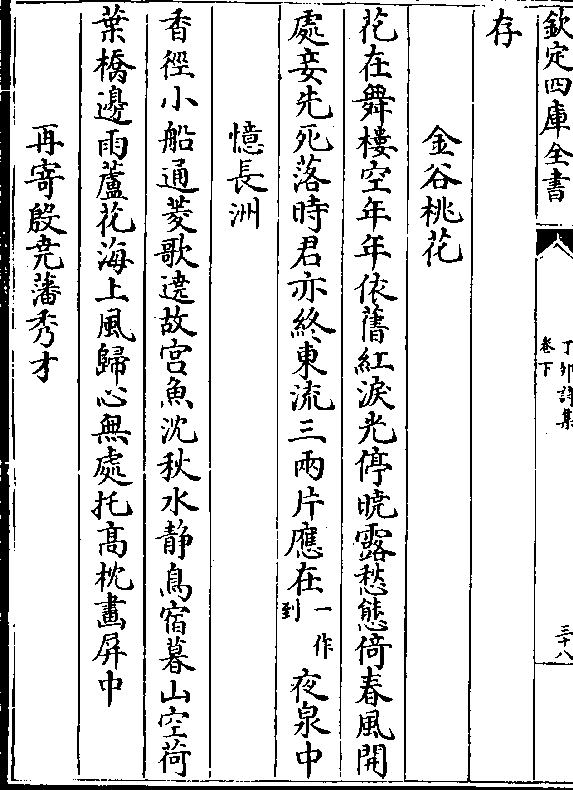 欽定四庫全書
丁卯詩集
卷下
三十八
存
金谷桃花
花在舞樓空年年依舊紅淚光停曉露愁態倚春風開
處妾先死落時君亦終東流三兩片應在一作到夜泉中
憶長洲
香徑小船通菱歌遶故宮魚沈秋水靜鳥宿暮山空荷
葉橋邊雨蘆花海上風歸心無處托高枕畫屏中
再寄殷堯藩秀才